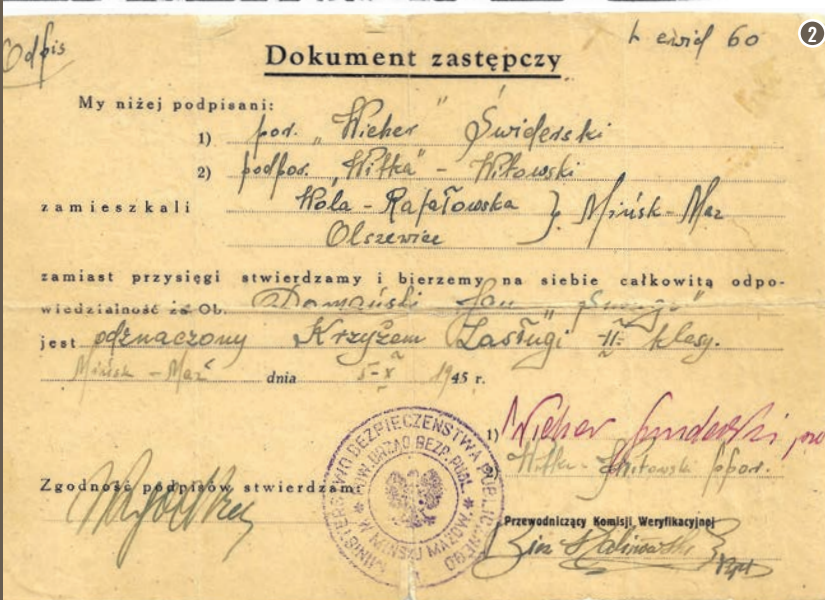 Odpis
L ewid 60
2
Dokument zastępczy
My niżej podpisani:
1) por. "Wicher" Świderski
2) podpor. "Witka" - Witowski
zamieszkali Wola - Rafałowska } Mińsk - Maz
Olszewice
zamiast przysięgi stwierdzamy i bierzemy na siebie całkowitą odpo-
wiedzialność że Ob. Domański Jan
jest odznaczony Krzyżem Zasługi II klasy.
Mińsk - Maz dnia 5-X 1945 r.
1) Wicher Świderski por
Witka - Witowski ppor.
Zgodność podpisów stwierdzam
MINISTERSTWO BEZPIECZEŃSTWA PUBLICZNEGO
POW. URZĄD BEZP. PUBL. W MIŃSKU MAZOW.
Przewodniczący Komisji Weryfikacyjnej
Kalinowski